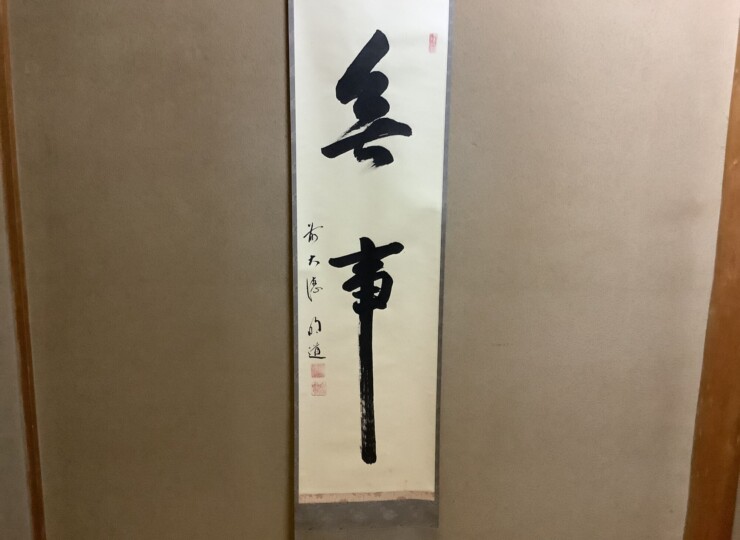 無事
前大徳 明道